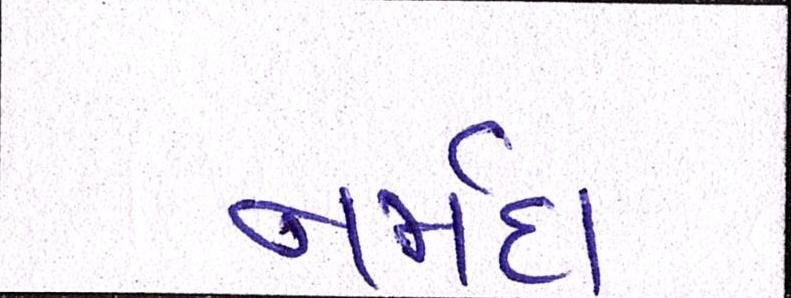 નર્મદા